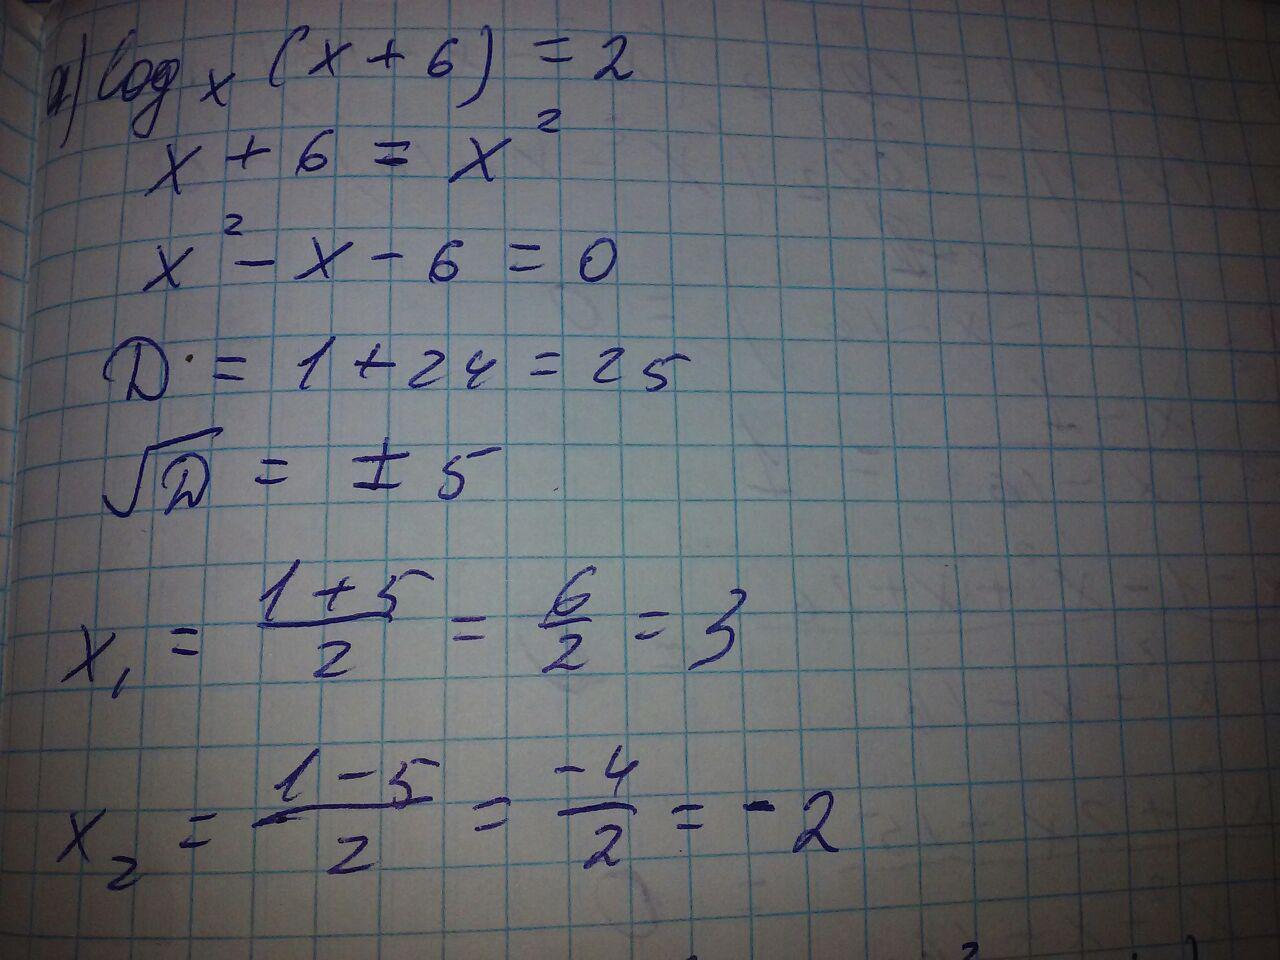 а) log x (x + 6) = 2
x + 6 = x²
x² - x - 6 = 0
D = 1 + 24 = 25
√D = ± 5
x₁ = (1 + 5)/2 = 6/2 = 3
x₂ = (1 - 5)/2 = -4/2 = -2